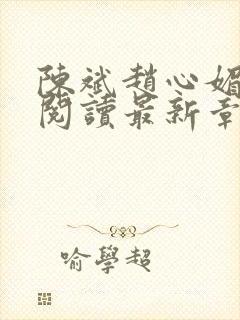 陳斌趙心媚
閱讀最新章
喻學超